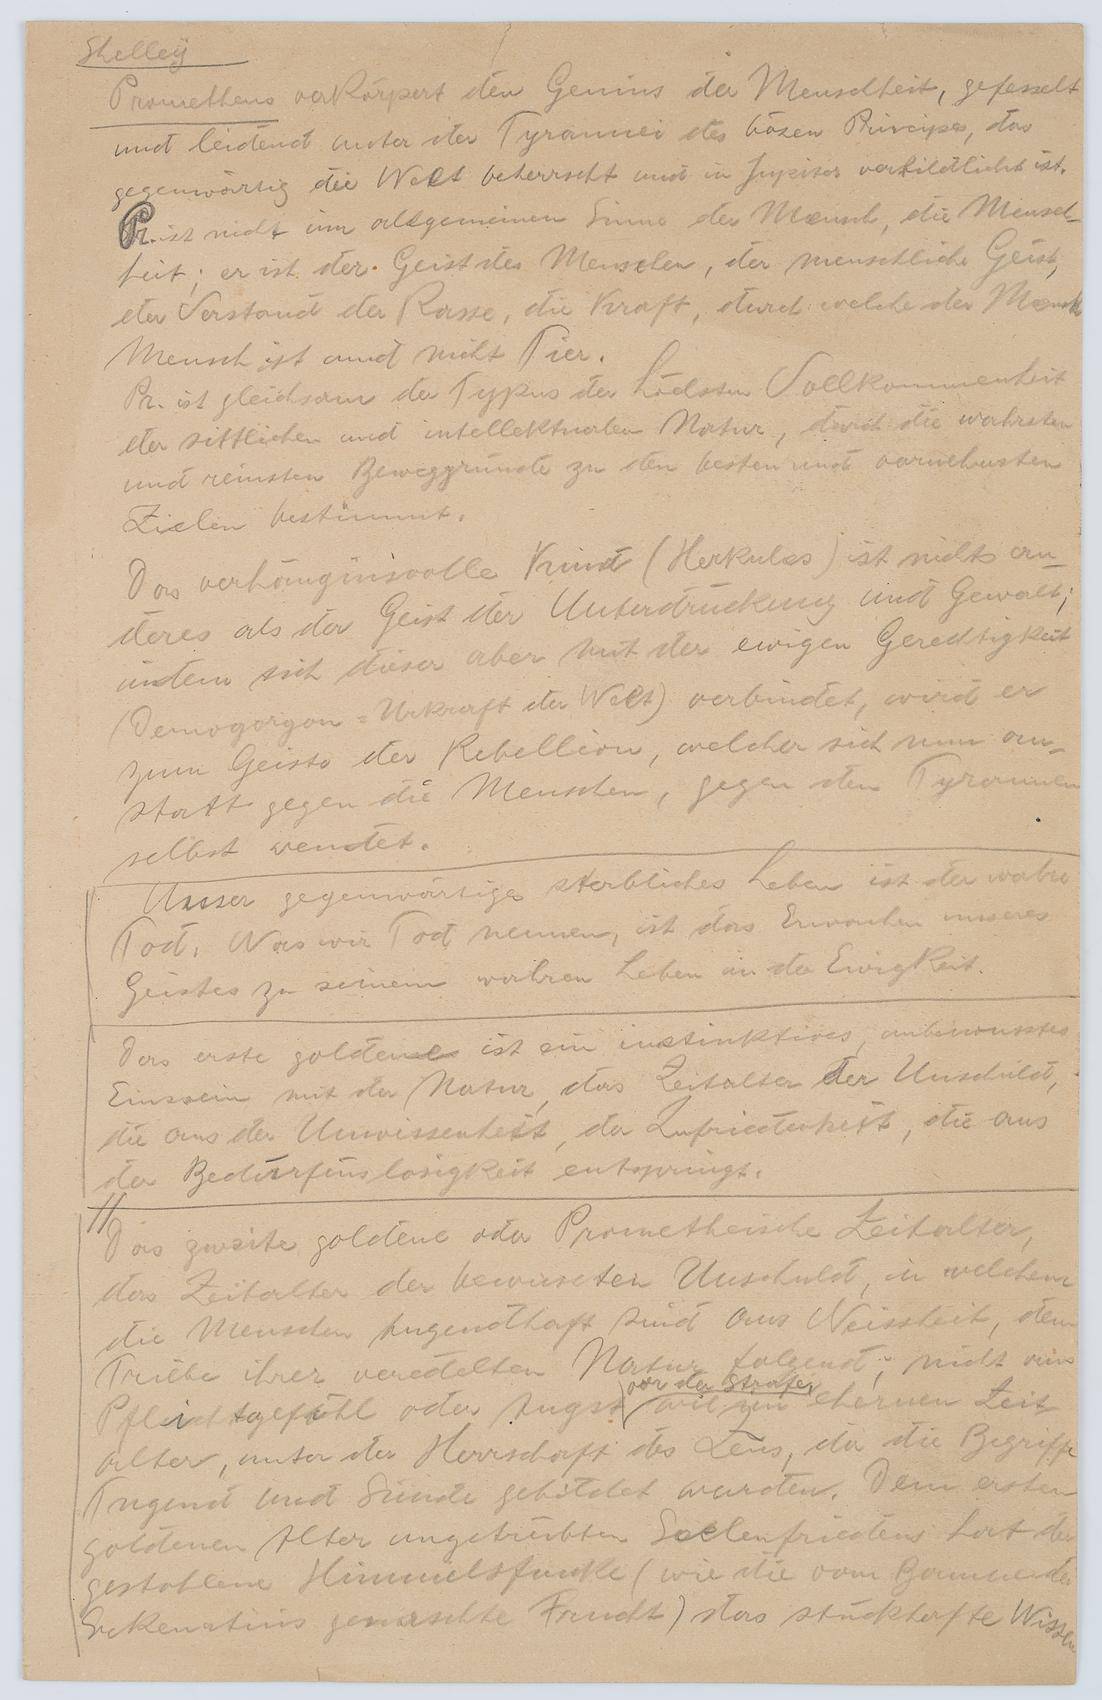 Shelley
Prometheus verkörpert den Genius der Menschheit, gefesselt
und leidend unter der Tyrannei des bösen Principes, das
gegenwärtig die Welt beherrscht und in Jupiter verbildlicht ist.
Pr. ist nicht im allgemeinen Sinne der Mensch, die Mensch-
heit; er ist der Geist des Menschen, der menschliche Geist,
der Verstand der Rasse, die Kraft, durch welche der Mensch
Mensch ist und nicht Tier.
Pr. ist gleichsam der Typus der höchsten Vollkommenheit
der sittlichen und intellektualen Natur, durch die wahrsten
und reinsten Beweggründe zu den besten und vornehmsten
Zielen bestimmt.
Das verhängnisvolle Kind (Herkules) ist nichts an-
deres als der Geist der Unterdrückung und Gewalt;
indem sich dieser aber mit der ewigen Gerechtigkeit
(Demogorgon = Urkraft der Welt) verbindet, wird er
zum Geiste der Rebellion, welcher sich nun an-
statt gegen die Menschen, gegen den Tyrannen
selbst wendet.
Unser gegenwärtiges sterbliches Leben ist der wahre
Tod. Was wir Tod nennen, ist das Erwachen unseres
Geistes zu seinem wahren Leben in der Ewigkeit.
Das erste goldene ist ein instinktives, unbewusstes
Einssein mit der Natur, das Zeitalter der Unschuld,
die aus der Unwissenheit, der Zufriedenheit, die aus
der Bedürfnislosigkeit entspringt.
Das zweite goldene oder Prometheische Zeitalter,
das Zeitalter der bewussten Unschuld, in welchem
die Menschen tugendhaft sind aus Weissheit, dem
Triebe ihrer veredelten Natur folgend; nicht aus
vor der Strafe,
Pflichtgefühl oder Angst wie im ehernen Zeit
alter, unter der Herrschaft des Zeus, da die Begriffe
Tugend und Sünde gebildet wurden. Dem ersten
goldenen Alter ungetrübten Seelenfriedens hat der
gestohlene Himmelsfunke (wie die vom Baume der
Erkenntnis genaschte Frucht) das stückhafte Wissen